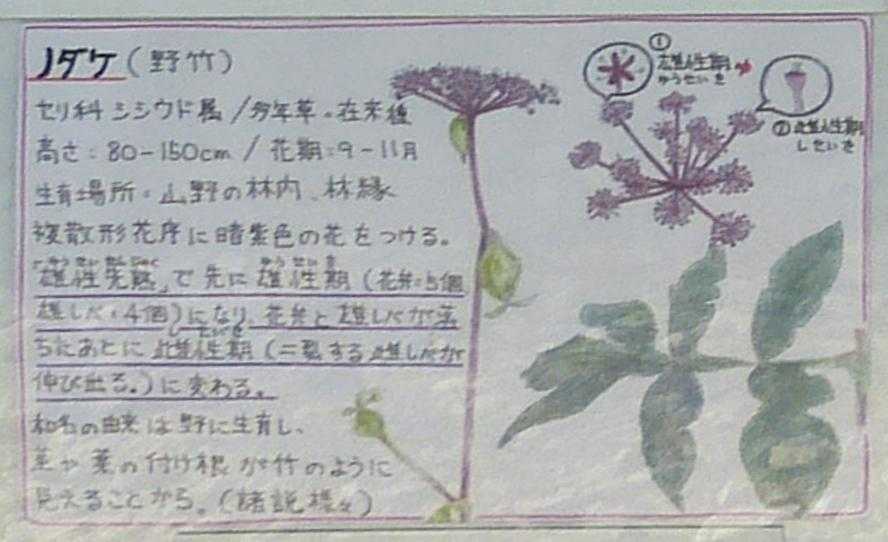 ノダケ（野竹）
セリ科 シシウド属／多年草・在来種
高さ：80-150cm / 花期：9-11月
生育場所・山野の林内、林縁
複散形花序に暗紫色の花をつける。
ゆうせいせんじゅく ゆうせいき
雄性先熟」で先に雄性期（花弁：5個
雄しべ：4個）になり、花弁と雄しべが落
しせいき
ちたあとに雌性期（二裂する雌しべが
伸び出る。）に変わる。
和名の由来は野に生育し、
茎や葉の付け根が竹のように
見えることから。（諸説様々）
①
雄性期
ゆうせいき
②雌性期
しせいき